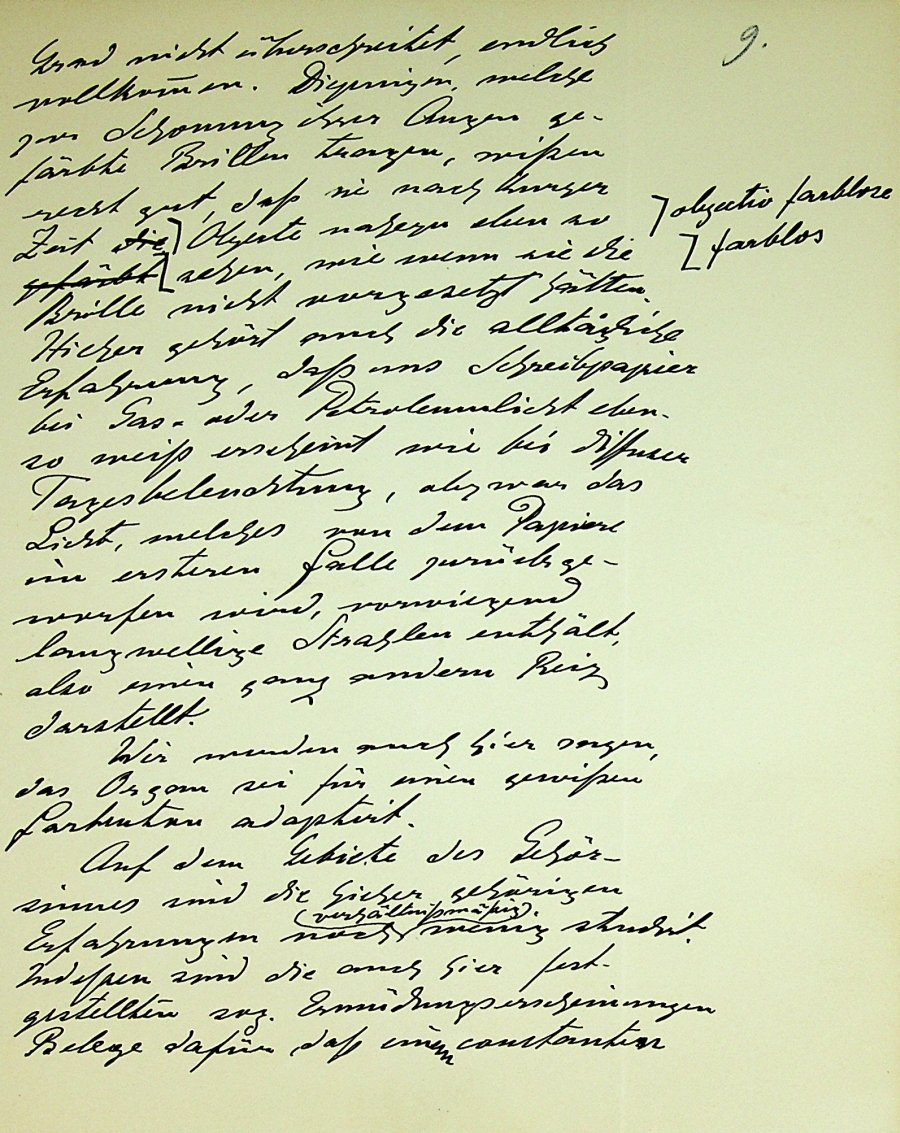 9.
Grad nicht überschreitet, endlich
vollkom̅en. Diejenigen, welche
zur Schonung ihrer Augen ge-
färbte Brillen tragen, wißen
recht gut, daß sie nach kurzer
Zeit die Objecte nahezu eben so
⌉ objectiv farblose
gefärbt sehen, wie wenn sie die
farblos
Brille nicht vorgesetzt hätten.
Hieher gehört auch die alltägliche
Erfahrung, daß uns Schreibpapier
bei Gas- oder Petroleumlicht eben-
so weiß erscheint wie bei diffuser
Tagesbeleuchtung, obzwar das
Licht, welches von dem Papiere
im ersteren Falle zurückge-
worfen wird, vorwiegend
langwellige Strahlen enthält,
also einen ganz andern Reiz
darstellt.
Wir werden auch hier sagen,
das Organ sei für einen gewißen
Farbenton adaptirt.
Auf dem Gebiete des Gehör-
sinnes sind die hieher gehörigen
(verhältnißmäßig)
Erfahrungen noch wenig studirt.
Indeßen sind die auch hier fest-
gestellten sog. Ermüdungserscheinungen
Belege dafür, daß einem constanten